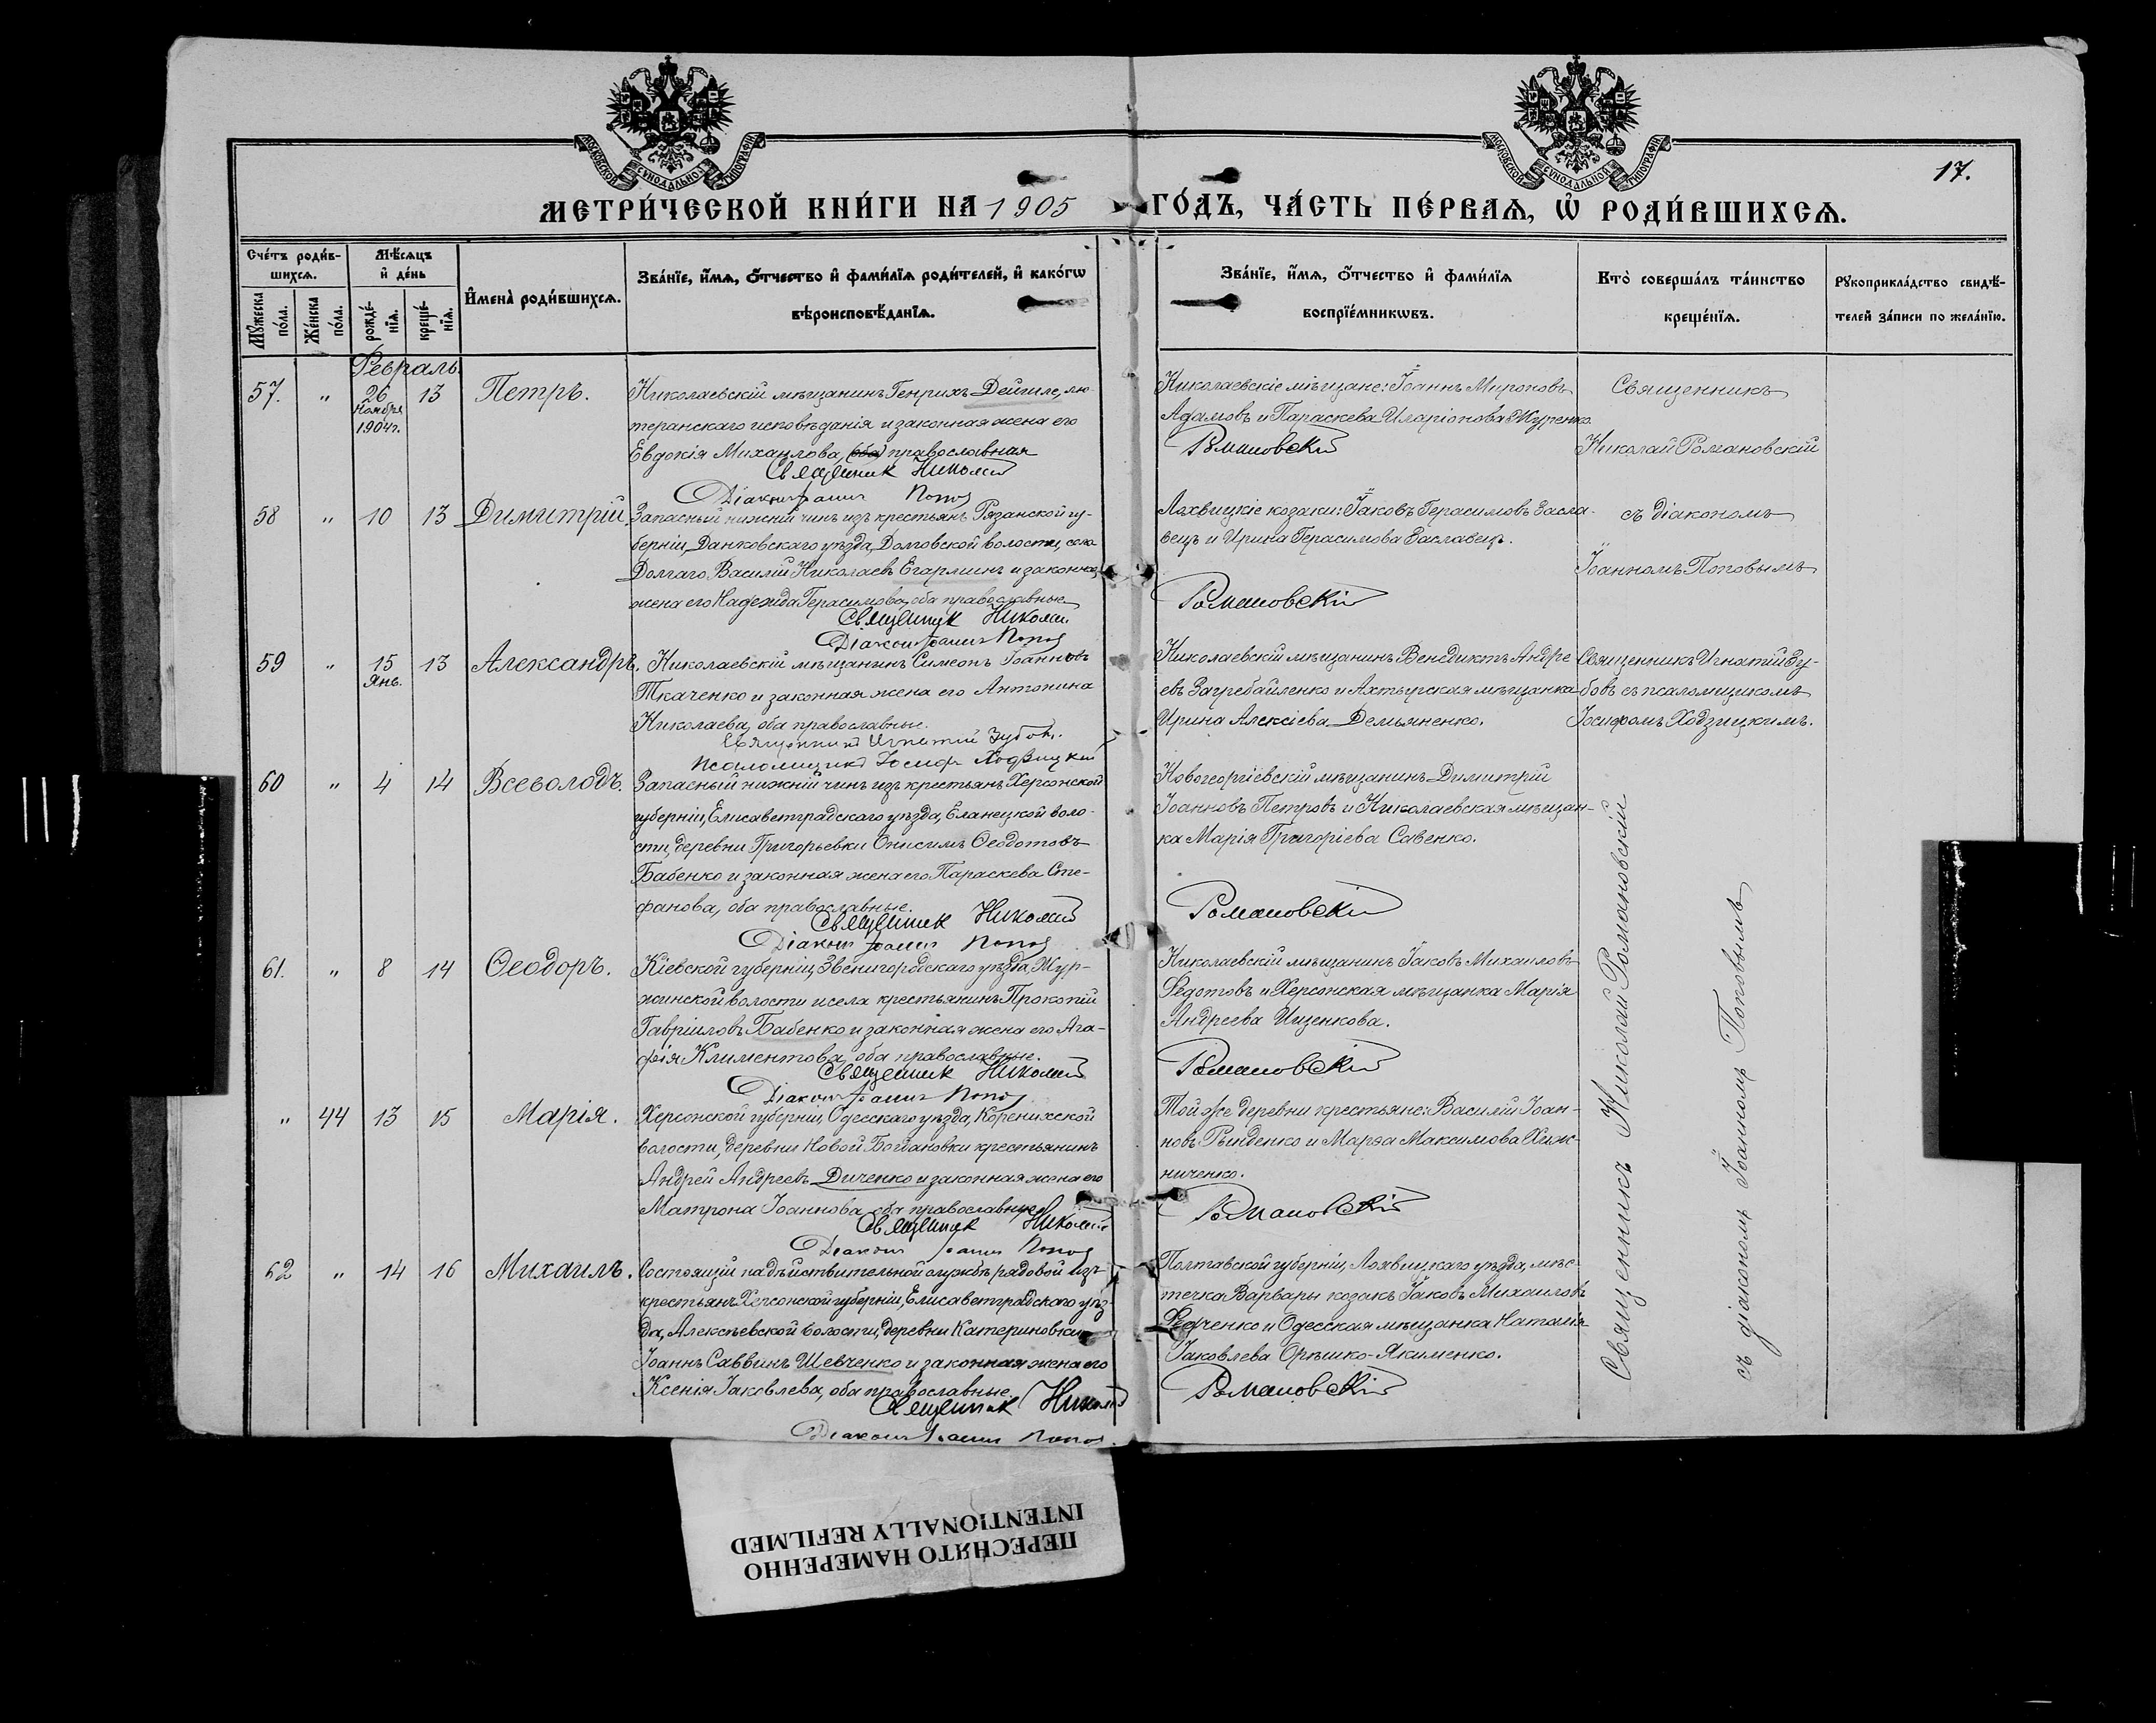 МОСКОВСКОЙ СѴНОДАЛЬНОЙ ТИПОГРАФІИ
МОСКОВСКОЙ СѴНОДАЛЬНОЙ ТИПОГРАФІИ
17.
МЕТРИ́ЧЕСКОЙ КНИ́ГИ НА 1905 ГО́ДЪ, ЧА́СТЬ ПЕ́РВАѦ, Ѡ҆ РОДИ́ВШИХСѦ.
Сче́тъ роди́в-
шихсѧ.
Мꙋжеска по́ла.
Же́нска по́ла.
Мѣ́сѧцъ
и҆ де́нь
рожде́-
нїѧ.
креще́-
нїѧ.
И҆мена̀ роди́вшихсѧ.
Зва́нїе, и҆́мѧ, ѻ҆́тчество и҆ фами́лїѧ роди́телей, и҆ како́гѡ
вѣроисповѣ́данїѧ.
Зва́нїе, и҆́мѧ, ѻ҆́тчество и҆ фами́лїѧ
воспрїе́мникѡвъ.
Кто̀ соверша́лъ та́инство
креще́нїѧ.
Рꙋкоприкла́дство свидѣ́-
телей за́писи по жела́нїю.
Февраль.
57. " 26 Ноября 1904 г. 13 Петръ.
Николаевскій мѣщанинъ Генрихъ Дейгиле, лю-
теранскаго исповѣданія и законная жена его
Евдокія Михаилова, (оба) православная
Священник Николай
Діакон Іоанн Попов
Николаевскіе мѣщане: Іоаннъ Мироновъ
Адамовъ и Параскева Иларіонова Журенко.
Романовскій
Священникъ
Николай Романовскій
58 " 10 13 Димитрій.
Запасный нижній чинъ изъ крестьянъ Рязанской гу-
берніи, Данковскаго уѣзда, Долговской волости, села
Долгаго, Василій Николаевъ Егарминъ и законная
жена его Надежда Герасимова, оба православные
Священник Николай
Діакон Іоанн Попов
Лохвицкіе козаки: Іаковъ Герасимовъ Засла-
вецъ и Ирина Герасимова Заславецъ.
Романовскій
съ діакономъ
Іоанномъ Поповымъ
59 " 15 Янв. 13 Александръ.
Николаевскій мѣщанинъ Симеонъ Іоанновъ
Ткаченко и законная жена его Антонина
Николаева, оба православные.
Священник Игнатий Зубов.
Псаломщик Іосиф Ходзицкий
Николаевскій мѣщанинъ Венедиктъ Андре-
евъ Загребайленко и Ахтырская мѣщанка
Ирина Алексіева Демьяненко.
Священникъ Игнатій Зу-
бовъ съ псаломщикомъ
Іосифомъ Ходзицкимъ.
60 " 4 14 Всеволодъ.
Запасный нижній чинъ изъ крестьянъ Херсонской
губерніи, Елисаветградскаго уѣзда, Еланецкой воло-
сти, деревни Григорьевки Онисимъ Ѳеодотовъ
Бабенко и законная жена его Параскева Сте-
фанова, оба православные.
Священник Николай
Діакон Іоанн Попов
Новогеоргіевскій мѣщанинъ Димитрій
Іоанновъ Петровъ и Николаевская мѣщан-
ка Марія Григоріева Савенко.
Романовскій
61. " 8 14 Ѳеодоръ.
Кіевской губерніи, Звенигородскаго уѣзда, Жур-
жинской волости и села крестьянинъ Прокопій
Гавріиловъ Бабенко и законная жена его Ага-
фія Климентова, оба православные.
Священник Николай
Діакон Іоанн Попов
Николаевскій мѣщанинъ Іаковъ Михаиловъ
Ѳедотовъ и Херсонская мѣщанка Марія
Андреева Ищенкова.
Романовскій
" 44 13 15 Марія.
Херсонской губерніи, Одесскаго уѣзда, Коренихской
волости, деревни Новой Богдановки крестьянинъ
Андрей Андреевъ Диченко и законная жена его
Матрона Іоаннова, оба православные
Священник Николай
Діакон Іоанн Попов
Той же деревни крестьяне: Василій Іоан-
новъ Рынденко и Марѳа Максимова Хиж-
ниченко.
Романовскій
62 " 14 16 Михаилъ.
Состоящій на дѣйствительной службѣ рядовой изъ
крестьянъ Херсонской губерніи, Елисаветградскаго уѣз-
да, Алексѣевской волости, деревни Катериновки
Іоаннъ Саввинъ Шевченко и законная жена его
Ксенія Іаковлева, оба православные.
Священник Николай
Діакон Іоанн Попов.
Полтавской губерніи, Лохвицкаго уѣзда, мѣс-
течка Варвары козакъ Іаковъ Михаиловъ
Ѳедченко и Одесская мѣщанка Наталія
Іаковлева Орѣшко-Якименко.
Романовскій
Священникъ Николай Романовскій
съ діакономъ Іоанномъ Поповымъ
ПЕРЕСНЯТО НАМЕРЕННО
INTENTIONALLY REFILMED